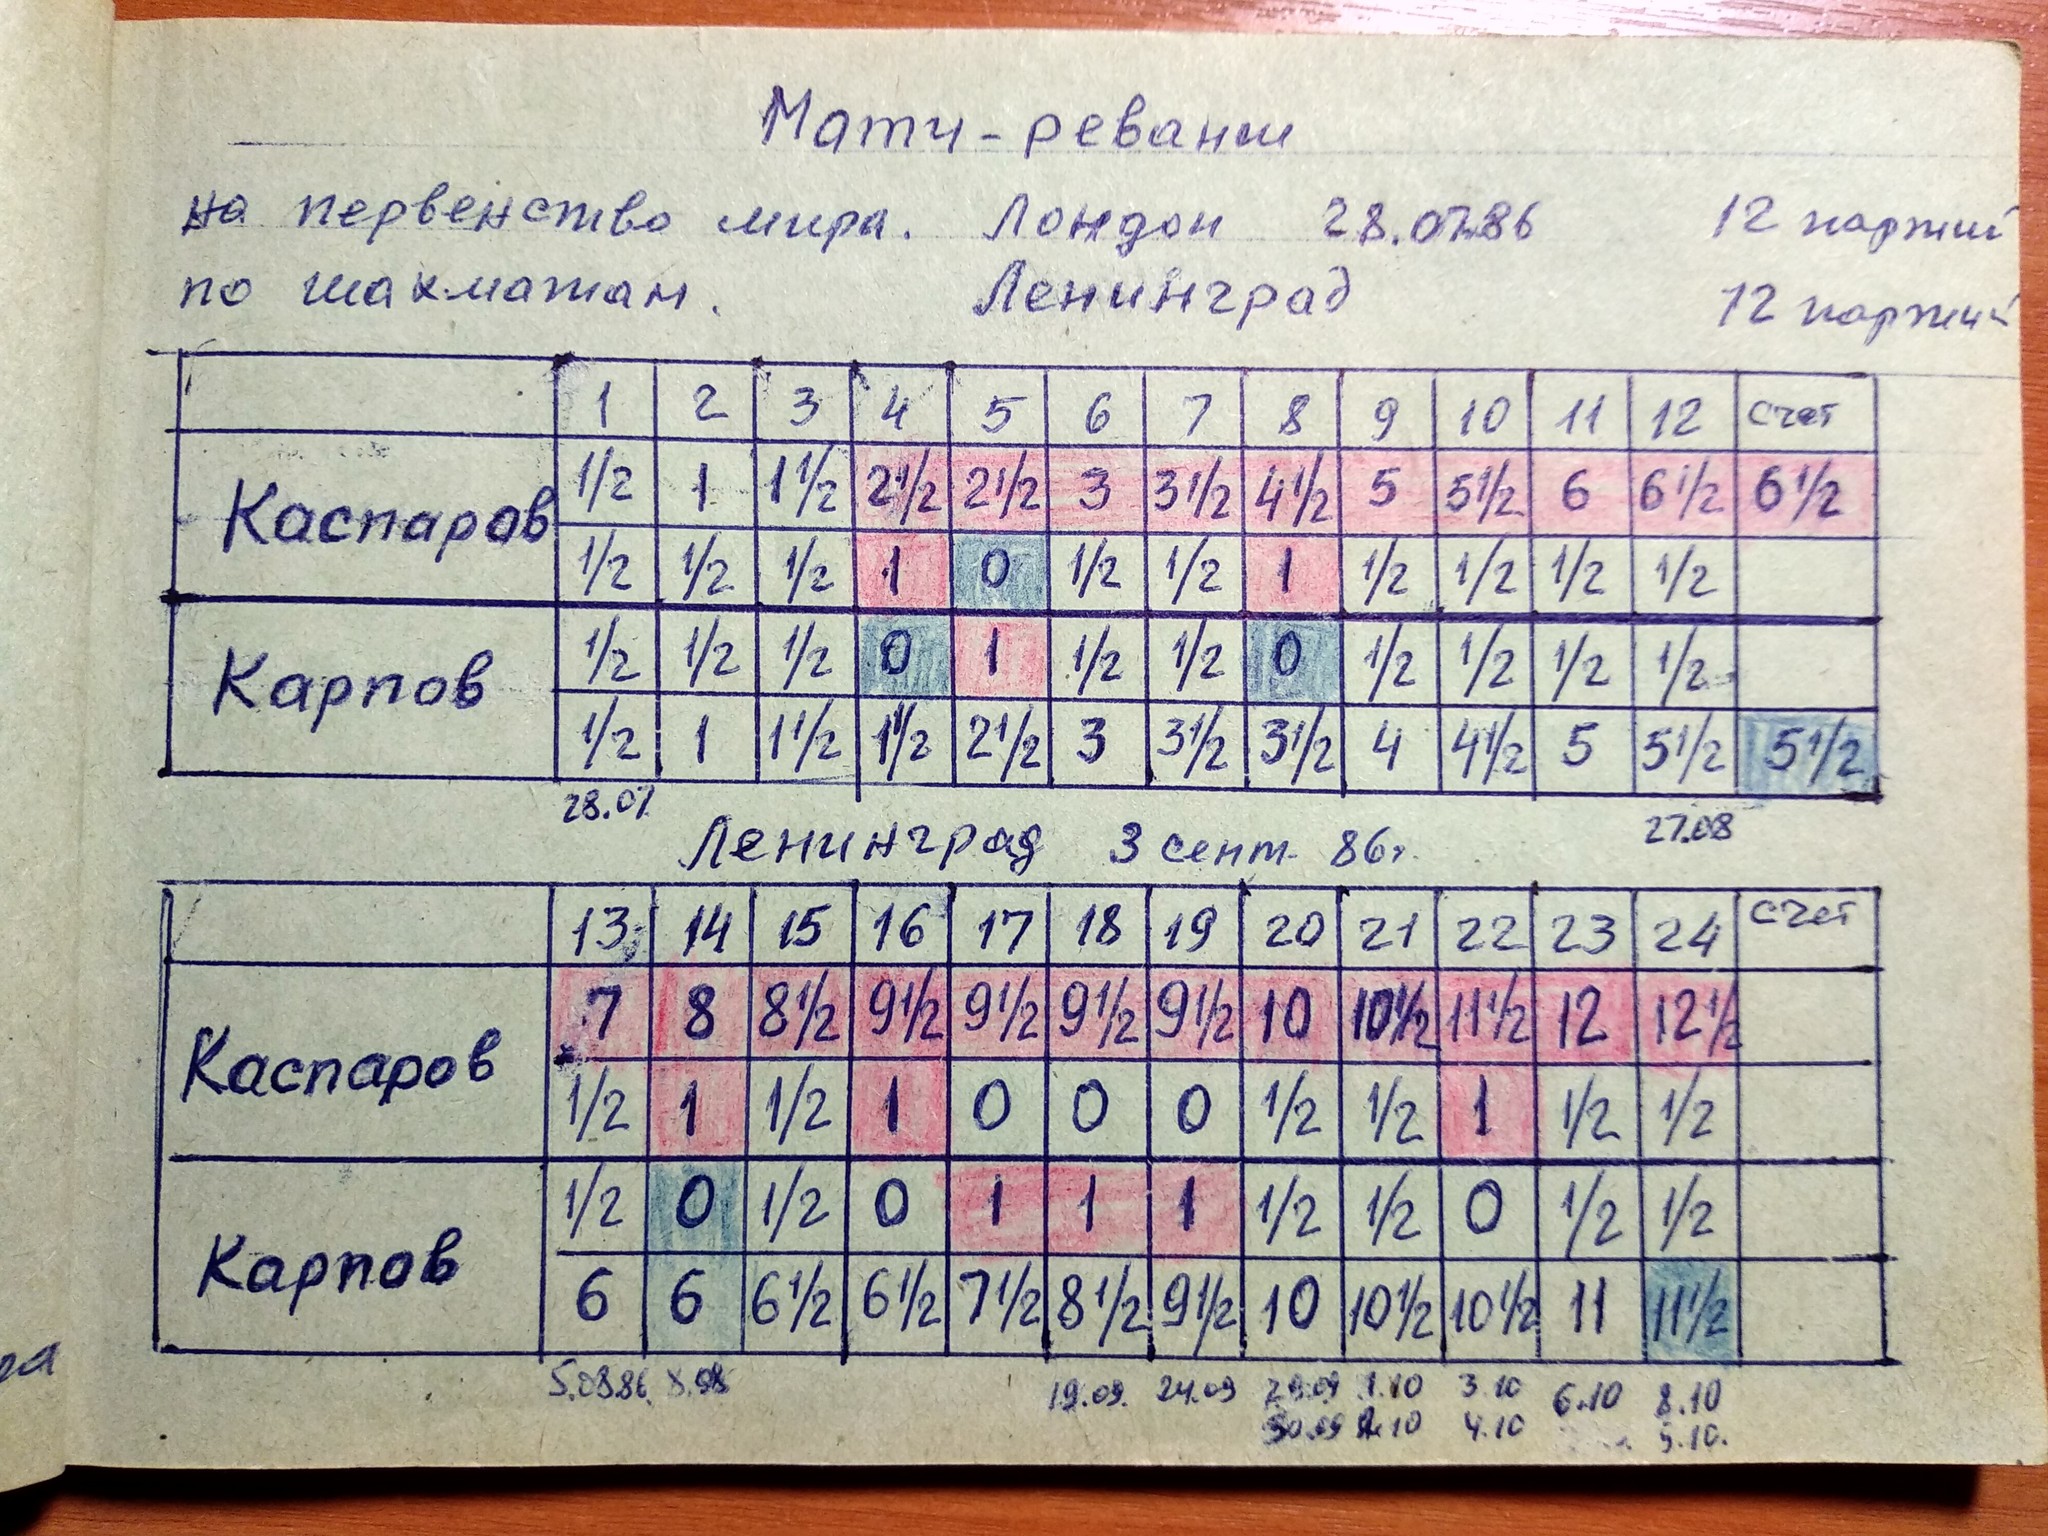 Матч-реванш
на первенство мира. Лондон 28.07.86 12 партий
по шахматам. Ленинград 12 партий
1 2 3 4 5 6 7 8 9 10 11 12 счет
Каспаров
1/2 1 1 1/2 2 1/2 2 1/2 3 3 1/2 4 1/2 5 5 1/2 6 6 1/2 6 1/2
1/2 1/2 1/2 1 0 1/2 1/2 1 1/2 1/2 1/2 1/2
Карпов
1/2 1/2 1/2 0 1 1/2 1/2 0 1/2 1/2 1/2 1/2
1/2 1 1 1/2 1 1/2 2 1/2 3 3 1/2 3 1/2 4 4 1/2 5 5 1/2 5 1/2
28.07 27.08
Ленинград 3 сент. 86г.
13 14 15 16 17 18 19 20 21 22 23 24 счет
Каспаров
7 8 8 1/2 9 1/2 9 1/2 9 1/2 9 1/2 10 10 1/2 11 1/2 12 12 1/2
1/2 1 1/2 1 0 0 0 1/2 1/2 1 1/2 1/2
Карпов
1/2 0 1/2 0 1 1 1 1/2 1/2 0 1/2 1/2
6 6 6 1/2 6 1/2 7 1/2 8 1/2 9 1/2 10 10 1/2 10 1/2 11 11 1/2
19.09. 24.09 29.09 1.10 3.10 6.10 8.10
30.09 2.10 4.10